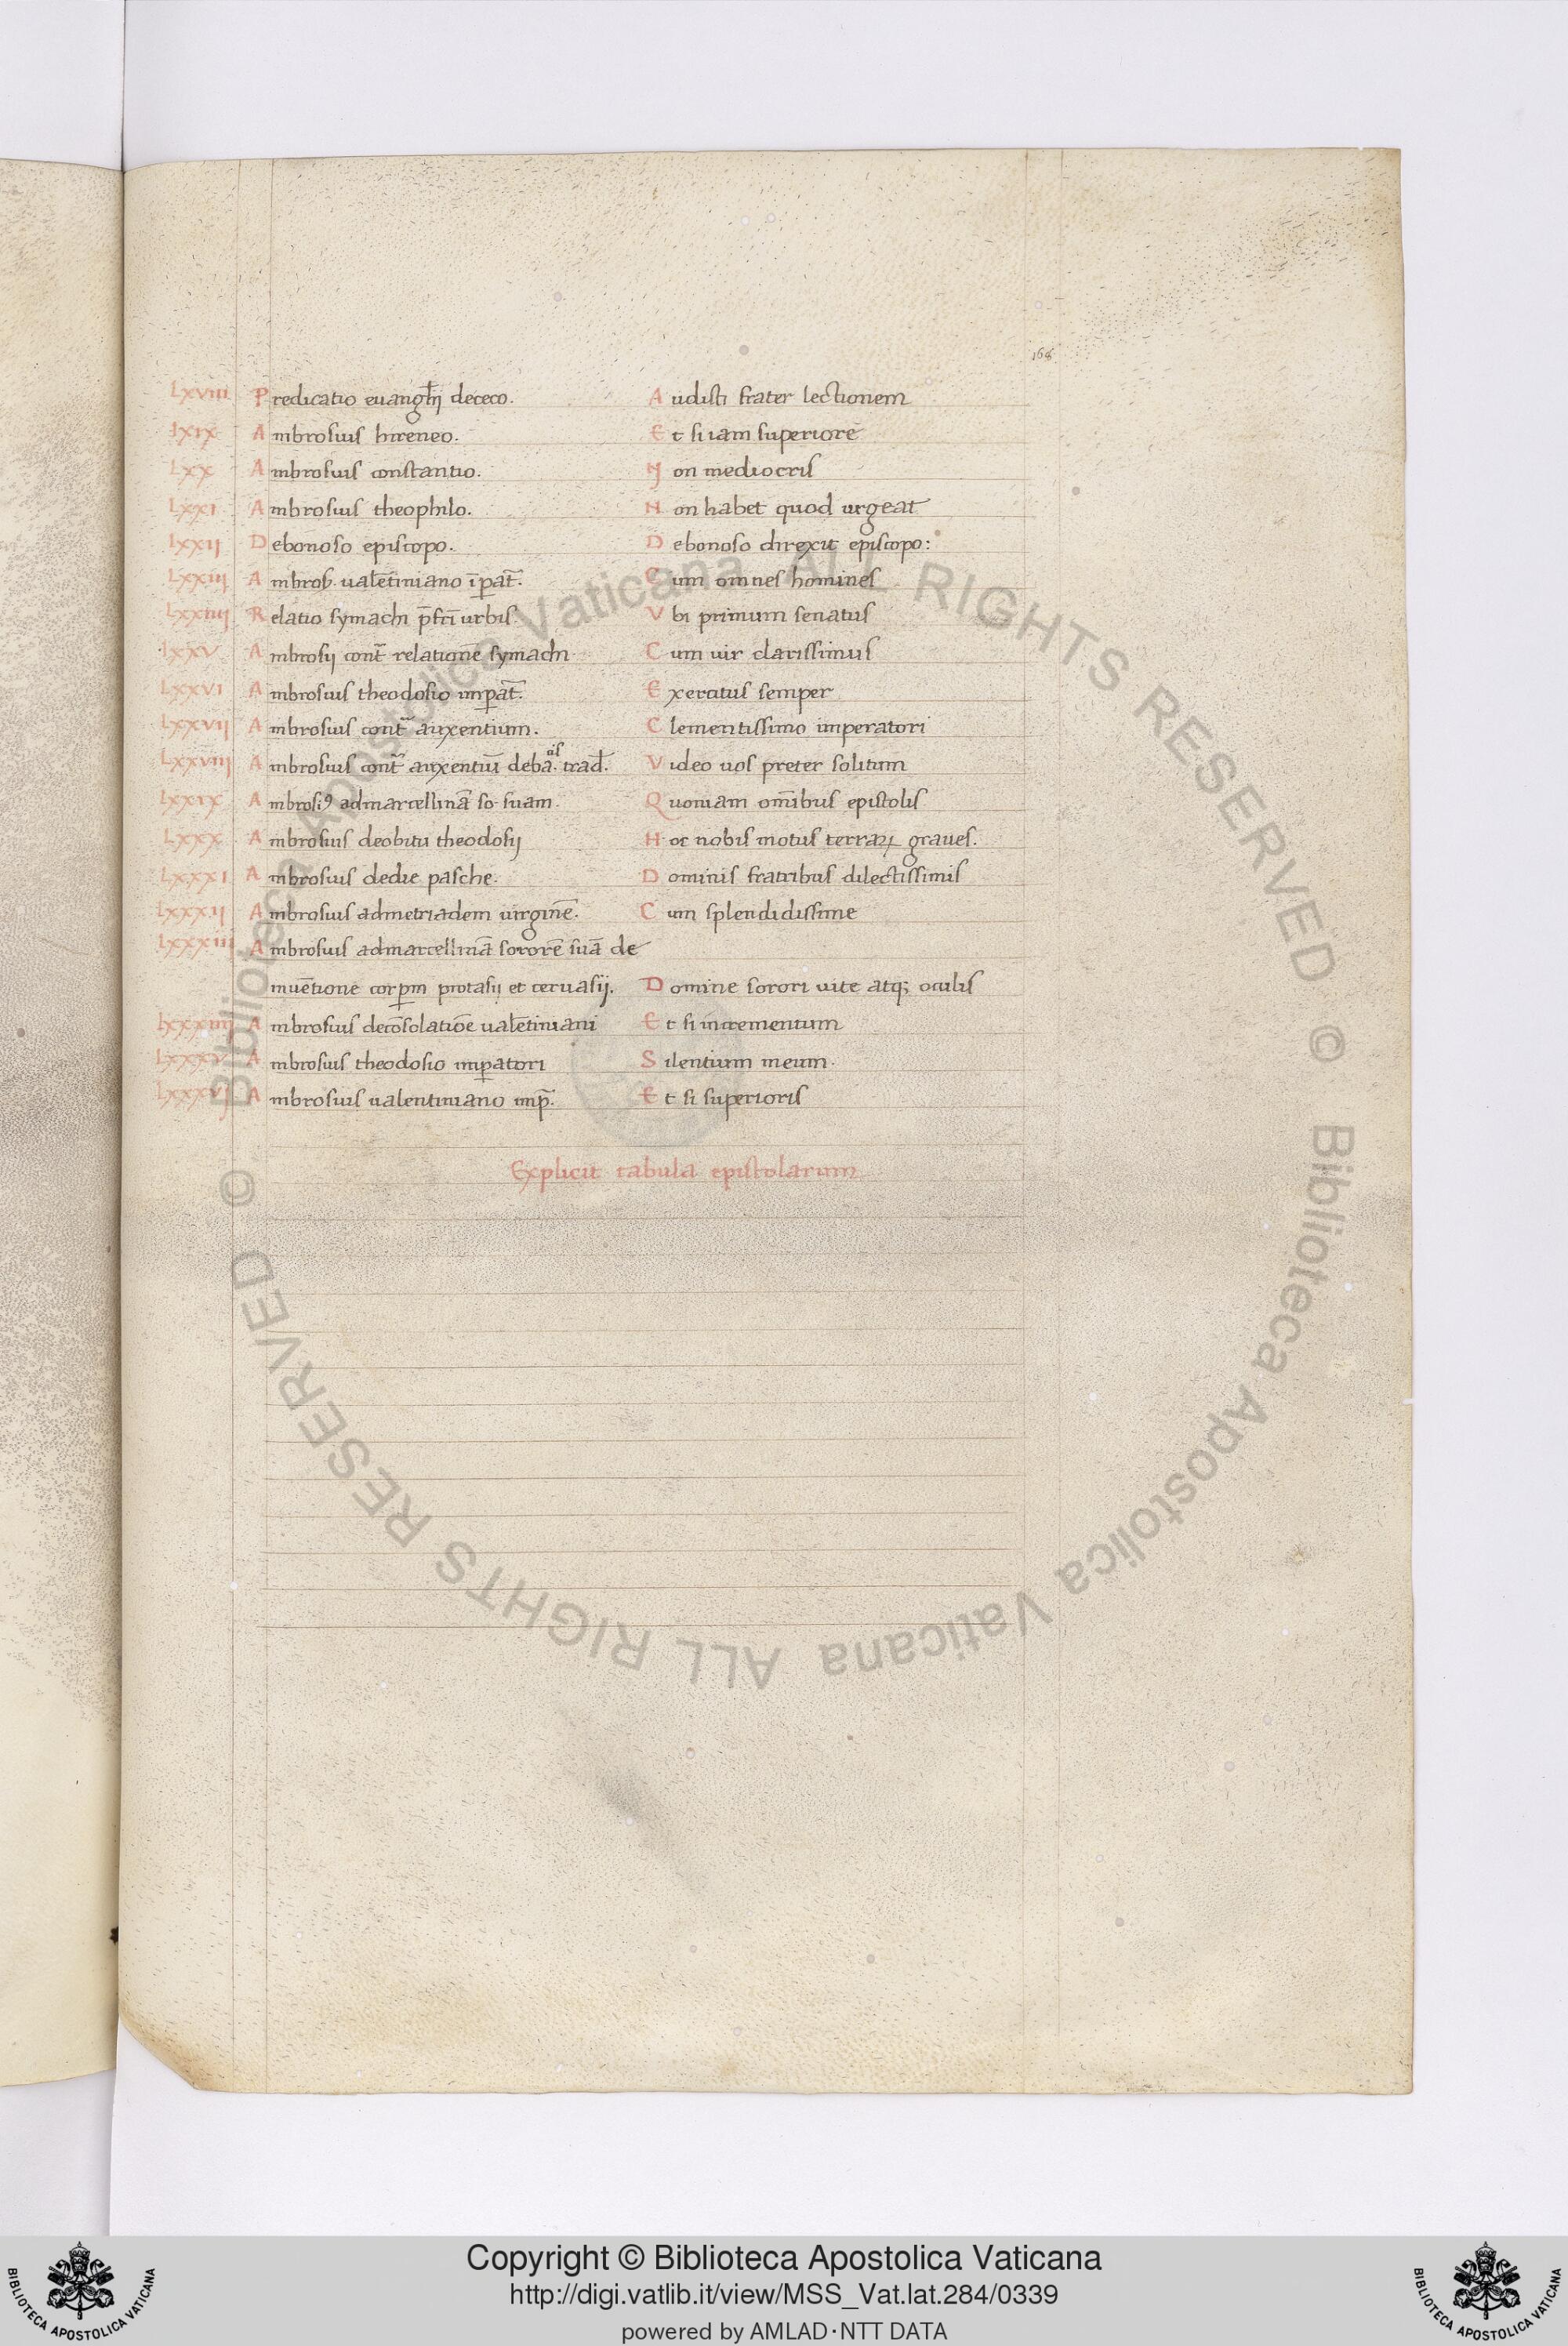 168
Lxviii Predicatio euanglij dececo. Audisti frater lectionem
Lxix Ambrosius hireneo. Et si iam superiore
Lxx Ambrosius constantio. Non mediocris
Lxxi Ambrosius theophilo. Non habet quod urgeat
Lxxij Debonoso episcopo. Debonoso direxit episcopo:
Lxxiij Ambros. ualētiniano īpat̄. Cum omnes homines
Lxxiiij Relatio symachi p̄fci urbis. Vbi primum senatus
Lxxv Ambrosij cont̄ relationē symachi Cum uir clarissimus
Lxxvi Ambrosius theodosio impat̄. Exercitus semper
Lxxvij Ambrosius cont̄ auxentium. Clementissimo imperatori
Lxxviij Ambrosius cont̄ auxentiū debā. trad. Video uos preter solitum
Lxxix Ambrosiꝰ admarcellinā so suam. Quoniam om̄ibus epistolis
Lxxx Ambrosius deobitu theodosij Hoc nobis motus terraꝝ graues.
Lxxxi Ambrosius dedie pasche. Dominis fratribus dilectissimis
Lxxxij Ambrosius admetriadem uirginē. Cum splendidissime
Lxxxiij Ambrosius admarcellinā sororē suā de
inuētione corꝑm protasij et ceruasij. Domine sorori uite atq; oculis
Lxxxiiij Ambrosius decōsolatiōe ualētiniani Et si incrementum
Lxxxv Ambrosius theodosio imꝑatori Silentium meum.
Lxxxvj Ambrosius ualentiniano imp̄. Et si superioris
Explicit tabula epistolarum
© Biblioteca Apostolica Vaticana ALL RIGHTS RESERVED © Biblioteca Apostolica Vaticana ALL RIGHTS RESERVED
BIBLIOTECA APOSTOLICA VATICANA
Copyright © Biblioteca Apostolica Vaticana
http://digi.vatlib.it/view/MSS_Vat.lat.284/0339
powered by AMLAD·NTT DATA
BIBLIOTECA APOSTOLICA VATICANA